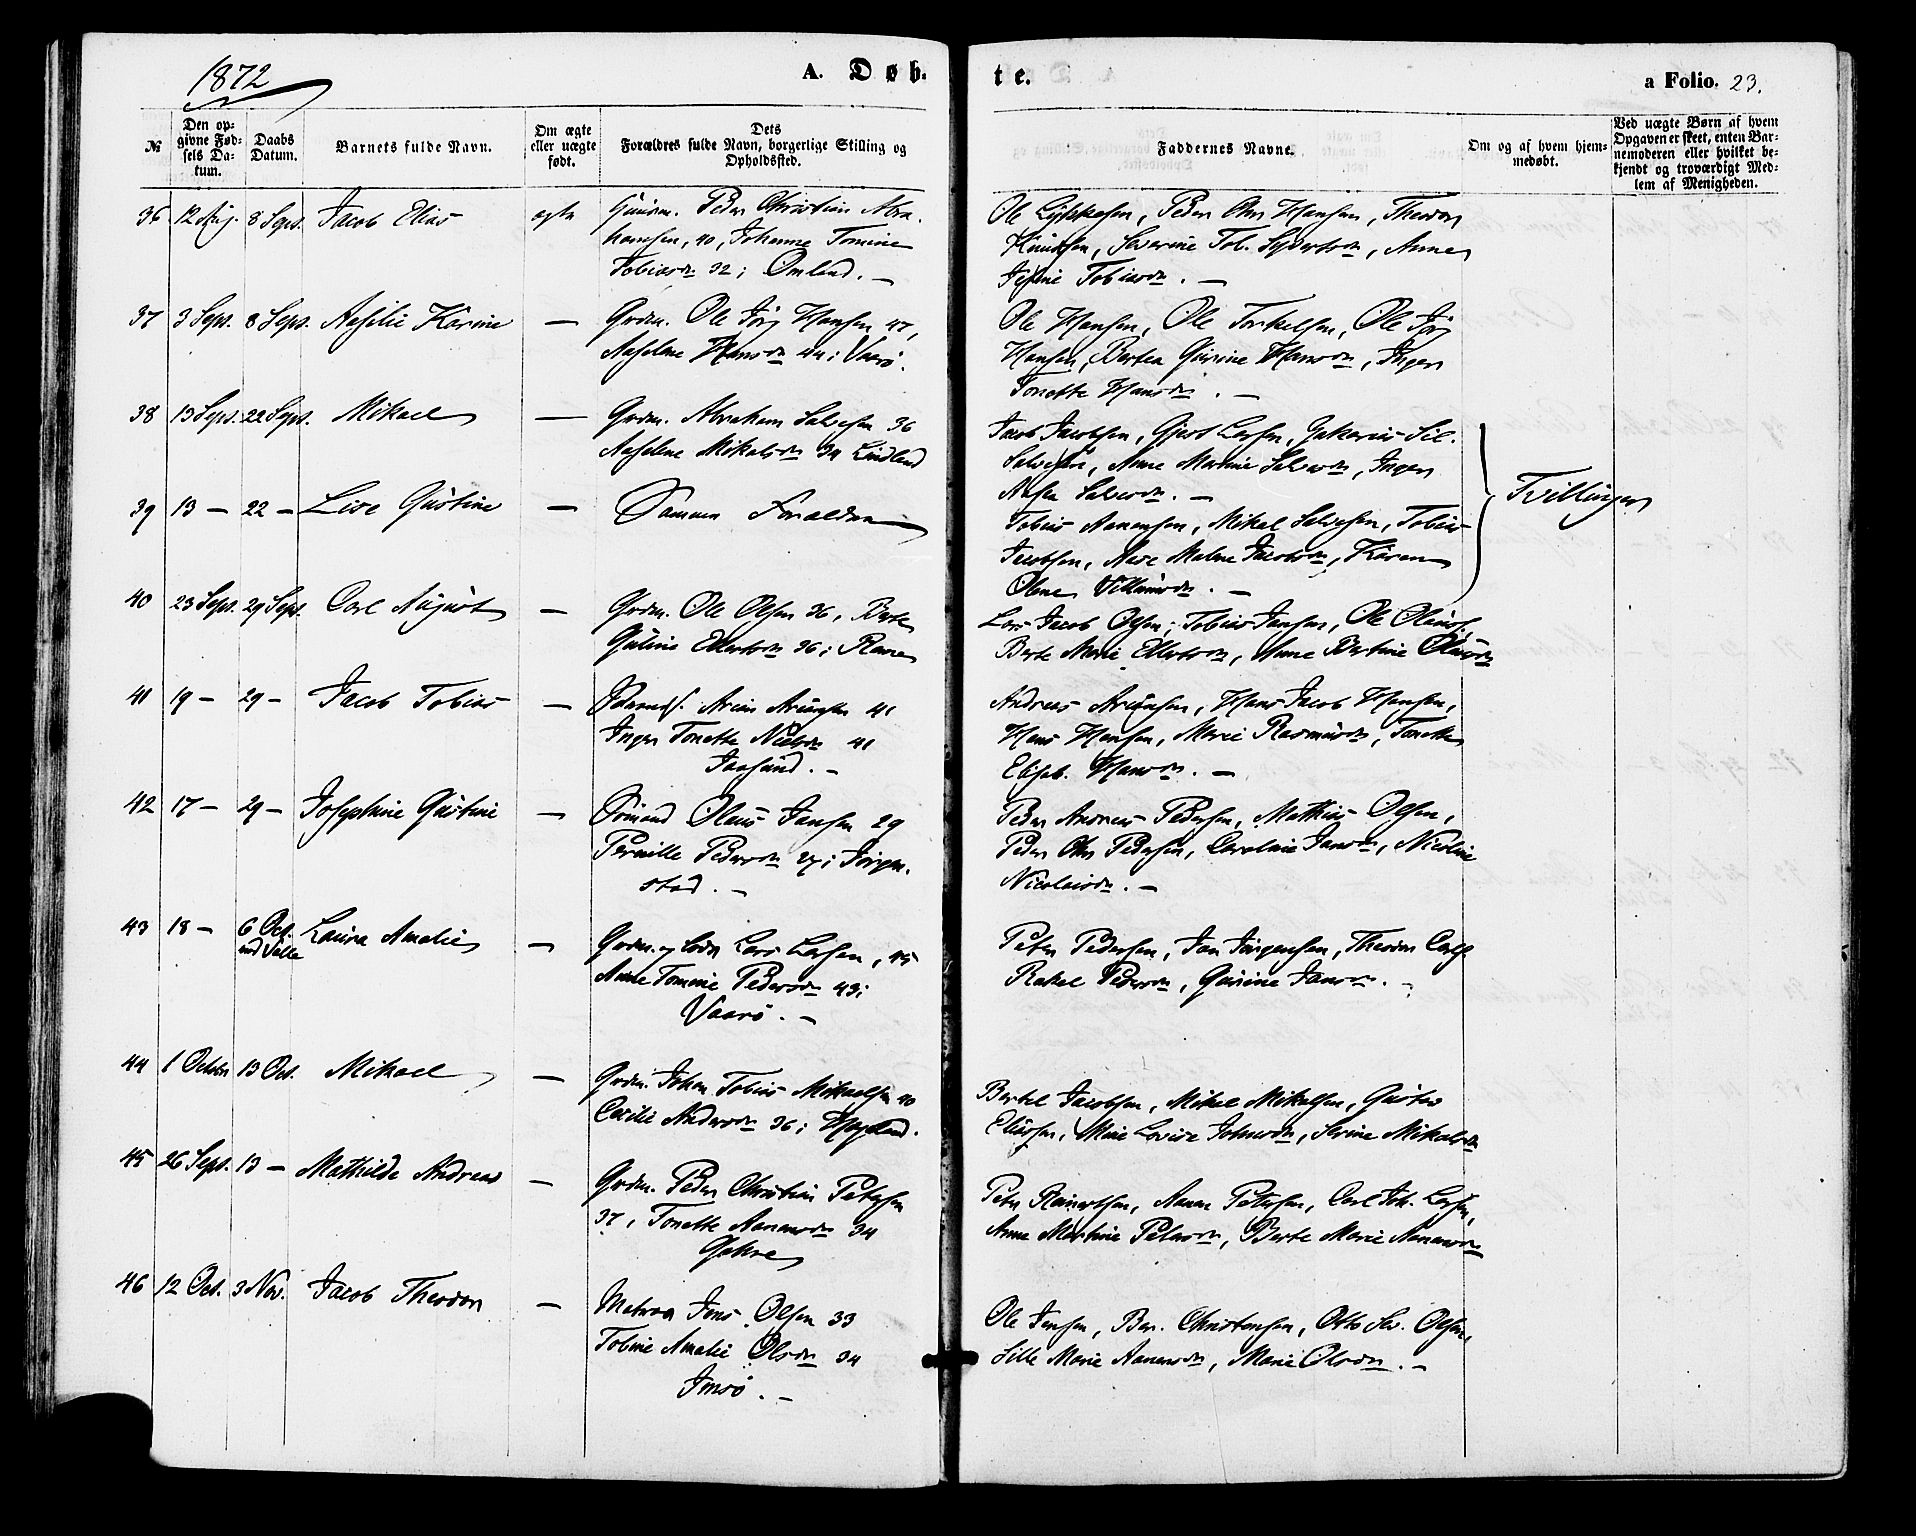 1872
A. Døb-
te.
a Folio. 23.
№
Den op-
givne Fød-
sels Da-
tum.
Daabs
Datum.
Barnets fulde Navn.
Om ægte
eller uægte
født.
Dets
Forældres fulde Navn, borgerlige Stilling og
Opholdsted.
Faddernes Navne.
Om og af hvem hjem-
medøbt.
Ved uægte Børn af hvem
Opgaven er skeet, enten Bar-
nemoderen eller hvilket be-
kjendt og troværdigt Med-
lem af Menigheden.
36 12 Aug. 8 Sept. Jacob Elias ægte Peder Christian Abra-
hamsen, 40, Johanne Tomine
Tobiasdr 32; Omlid. —
Ole Peder Chr Hansen, Theodor
Knudsen, Severine Tob. Anne
Tobiasdr. —
37 3 Sept. 8 Sept. Karine — Grdm. Ole Jørg Hansen 47,
Hansdr 44; Vaarø.
Ole Hansen, Ole Torkelsen, Ole Jørg
Hansen, Bertea Gurine Hansdr, Inger
Tonette Hansdr. —
38 13 Sept. 22 Sept. Mikael — Grdm. Abraham Salvesen 36
Mikalsdr 34 Lindland
Jacob Jacobsen, Gjert Larsen, Zakarias Sil.
Salvesen, Anne Martine Salvesdr, Inger
Salvesdr. —
39 13 — 22 — Live Gustine — Samme Forældre
Tobias Aanensen, Mikal Salvesen, Tobias
Jacobsen, Malene Jacobsdr, Karen
Olene Villumsdr. —
Tvillinger
40 23 Sept. 29 Sept. Carl August — Grdm. Ole Olsen 36, Berte
Guline Ellertsdr 36; Rame
Lars Jacob Olsen, Tobias Jansen, Ole
Berte Marie Ellertsdr, Anne Bertine
41 19 — 29 — Jacob Tobias — 41
Inger Tonette Nielsdr 41
Jaasund. —
Andreas Hans Jacob Hansen,
Hans Hansen, Marie Rasmusdr, Tonette
Elisab. Hansdr. —
42 17 — 29 — Josephine Gustine — Sømand Olaus Jansen 29
Pernille Pedersdr 27; Jørgen-
stad. —
Peder Andreas Pedersen, Mathias Olsen,
Peder Chr Pedersen, Caroline Jansdr, Nicoline
Nicolaisdr. —
43 18 — 6 Oct. Laura Amalie — Grdm. og Lods Lars Larsen, 45
Anne Tomine Pedersdr 43;
Vaarø. —
Peter Pedersen, Jan Jørgensen, Theodor
Rakel Pedersdr, Gurine Jansdr. —
44 1 October 13 Oct. Mikael — Grdm. Johan Tobias Mikaelsen 40
Cecilie Andersdr 36;
Bertel Jacobsen, Mikal Mikalsen, Gustav
Eliasen, Mine Lovise Johnsdr, Serine Mikalsdr
45 26 Sept. 13 — Mathilde Andrea — Grdm. Peder Christian Petersen
37, Tonette Aanensdr 34
Gahre
Peter Reinertsen, Aanen Petersen, Carl Joh. Larsen,
Anne Martine Petersdr, Berte Marie Aanensdr
46 12 Oct. 3 Nov. Jacob Theodor — Matros Jens Olsen 33
Tobine Amalie Olsdr 34
Imsø. —
Ole Jensen, Ber. Christensen, Otto Sev. Olsen,
Sille Marie Aanensdr, Marie Olsdr. —